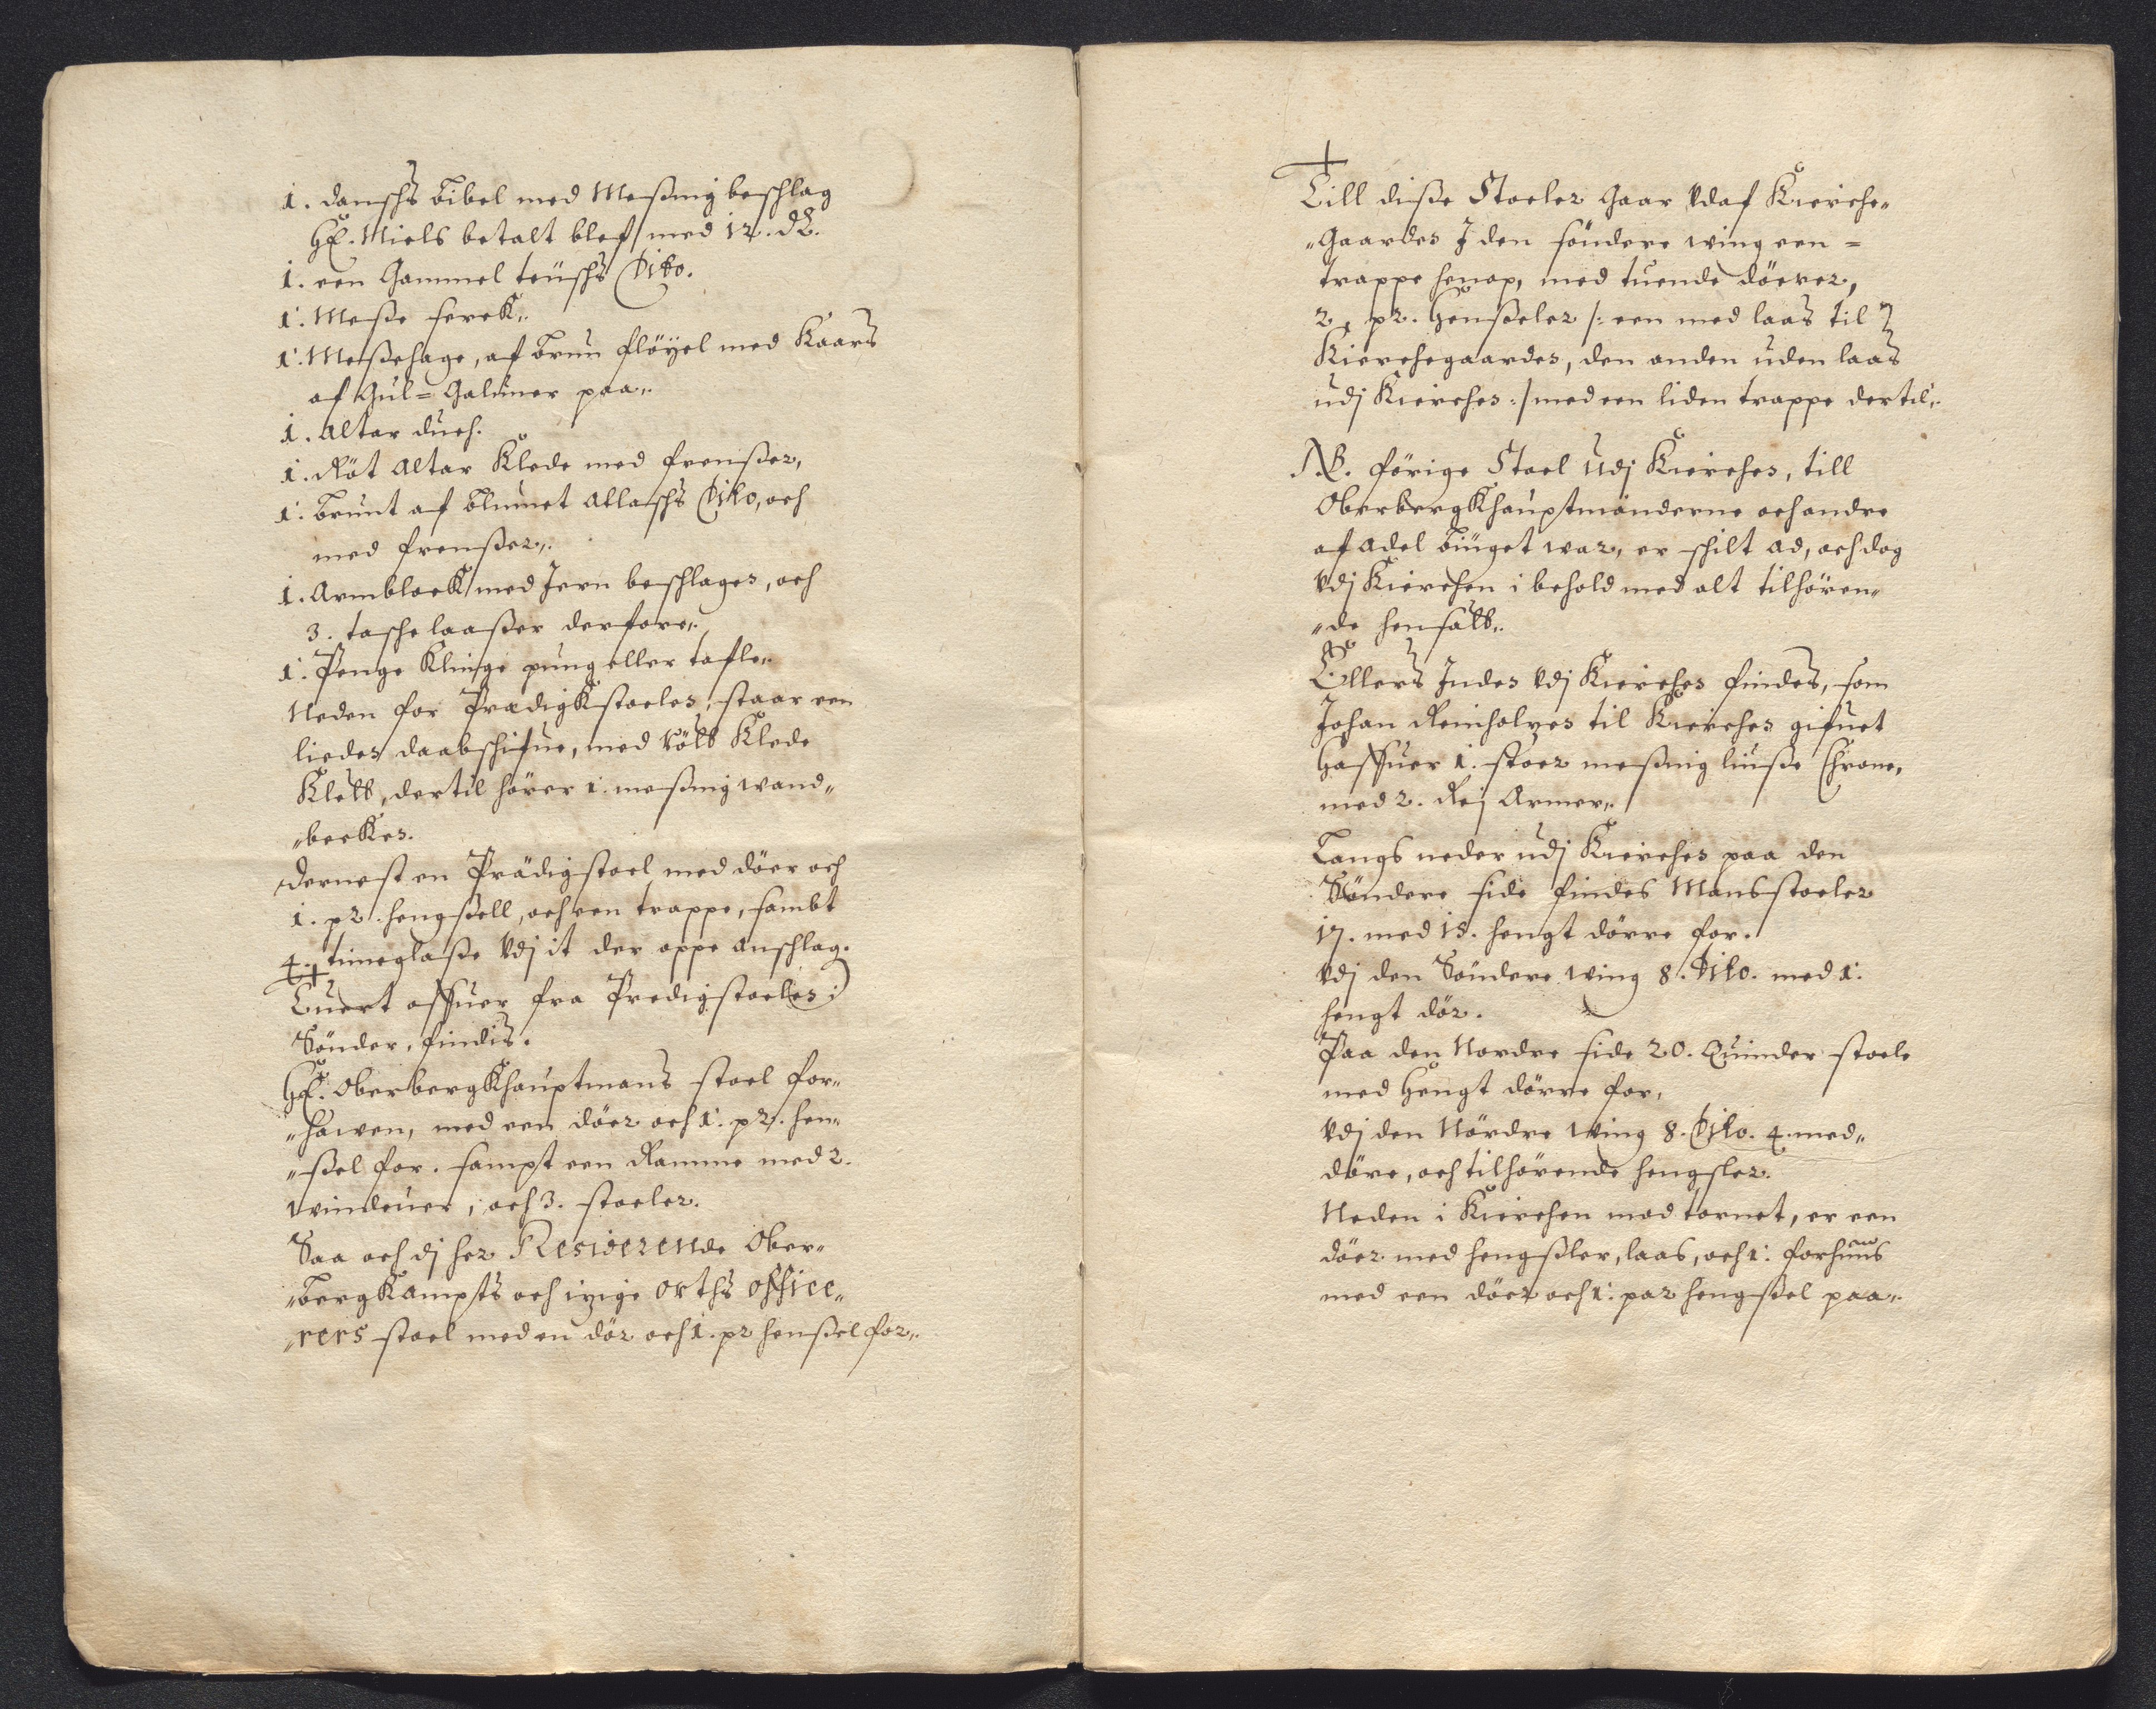 1. danschs bibel med Messing beschlag
HE. Niels betalt blef med 12. dL.
1. een Gammel teüschs Dito.
1. Messe serck„
1. Messehage, af brun flöyel med Kaars
af Gul= Galuner paa„
1. Altar duch.
1. Röt Altar Klede med frensser,
1. brunt af blumet Atlaschs Dito, och
med frensser„
1. Armblock med Jern beschlagen, och
3. tasche laasser derfore„
1. Penge Klinge pung eller tafle„
Neden for Prædigkstoelen, staar een
lieden daabschifue, med rött Klede
Klett, dertil hörer 1. messing wand„
„becken.
dernest en Prädigstoel med döer och
1. pr. hengssell, och een trappe, sambt
4. timeglasse Vdj it der oppe anschlag.
Tuert offuer fra Predigstoelen i
Sönder, findis.
HE. OberbergKhauptmans stoel for„
„hawen, med een döer och 1. pr. hen„
„ssel for. sampt een Ramme med 2.
windeuer, och 3. stoeler.
Saa och dj her Residerende Ober„
„bergKampts och izige orths officee„
„rers stoel med en dör och 1. pr henssel for„
Till disse Stoeler Gaar Vdaf Kierche„
„Gaarden J den söndere wing een =
trappe henop, med tuende döerer,
2, pr. Hensseler /: een med laas til
Kierchegaarden, den anden uden laas
udj Kierchen :/ med een liden trappe dertil„
NB. förige Stoel Udj Kierchen, till
OberbergKhauptmänderne och andre
af Adel binget war, er schilt ad, och dog
Vdj Kierchen i behold med alt tilhören„
„de hensatt„
Ellers Jnden Vdj Kierchen findes, som
Johan Reinholzen til Kierchen gifuet
Haffuer 1. stoer messing liusse Chrone,
med 2. Rej Armer„
Langs neder udj Kierchen paa den
Söndere side findes Mansstoeler
17. med 15. hengt dörre for.
Vdj den Söndere wing 8. Dito. med 1.
hengt dör.
Paa den Nordre side 20. Quinder stoele
med Hengt dörre for,
Vdj den Nördre wing 8. Dito. 4. med„
döre, och tilhörende hengsler.
Neden i Kierchen mod tornet, er een
döer med hengssler, laas, och 1. forhuus
med een döer och 1. par hengssel paa„